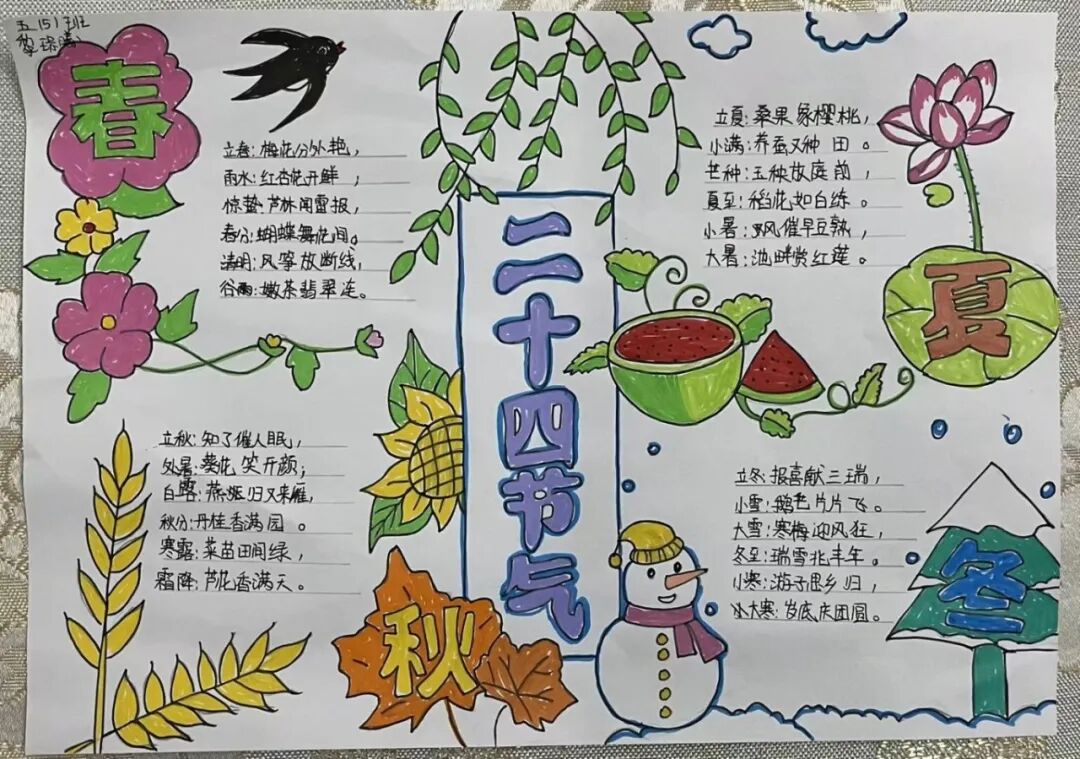 五(5)班
春
立春:梅花分外艳,
雨水:红杏花开鲜,
惊蛰:芦林闻雷报,
春分:蝴蝶舞花间。
清明:风筝放断线,
谷雨:嫩茶翡翠连。
二十四节气
立夏:桑果象樱桃,
小满:养蚕又种田。
芒种:玉秧放庭前,
夏至:稻花如白练。
小暑:风催早豆熟,
大暑:池畔赏红莲。
夏
立秋:知了催人眠,
处暑:葵花笑开颜;
白露:燕归又来雁,
秋分:丹桂香满园。
寒露:菜苗田间绿,
霜降:芦花香满天。
秋
立冬:报喜献三瑞,
小雪:鹅毛片片飞。
大雪:寒梅迎风狂,
冬至:瑞雪兆丰年。
小寒:游子思乡归,
大寒:岁底庆团圆。
冬